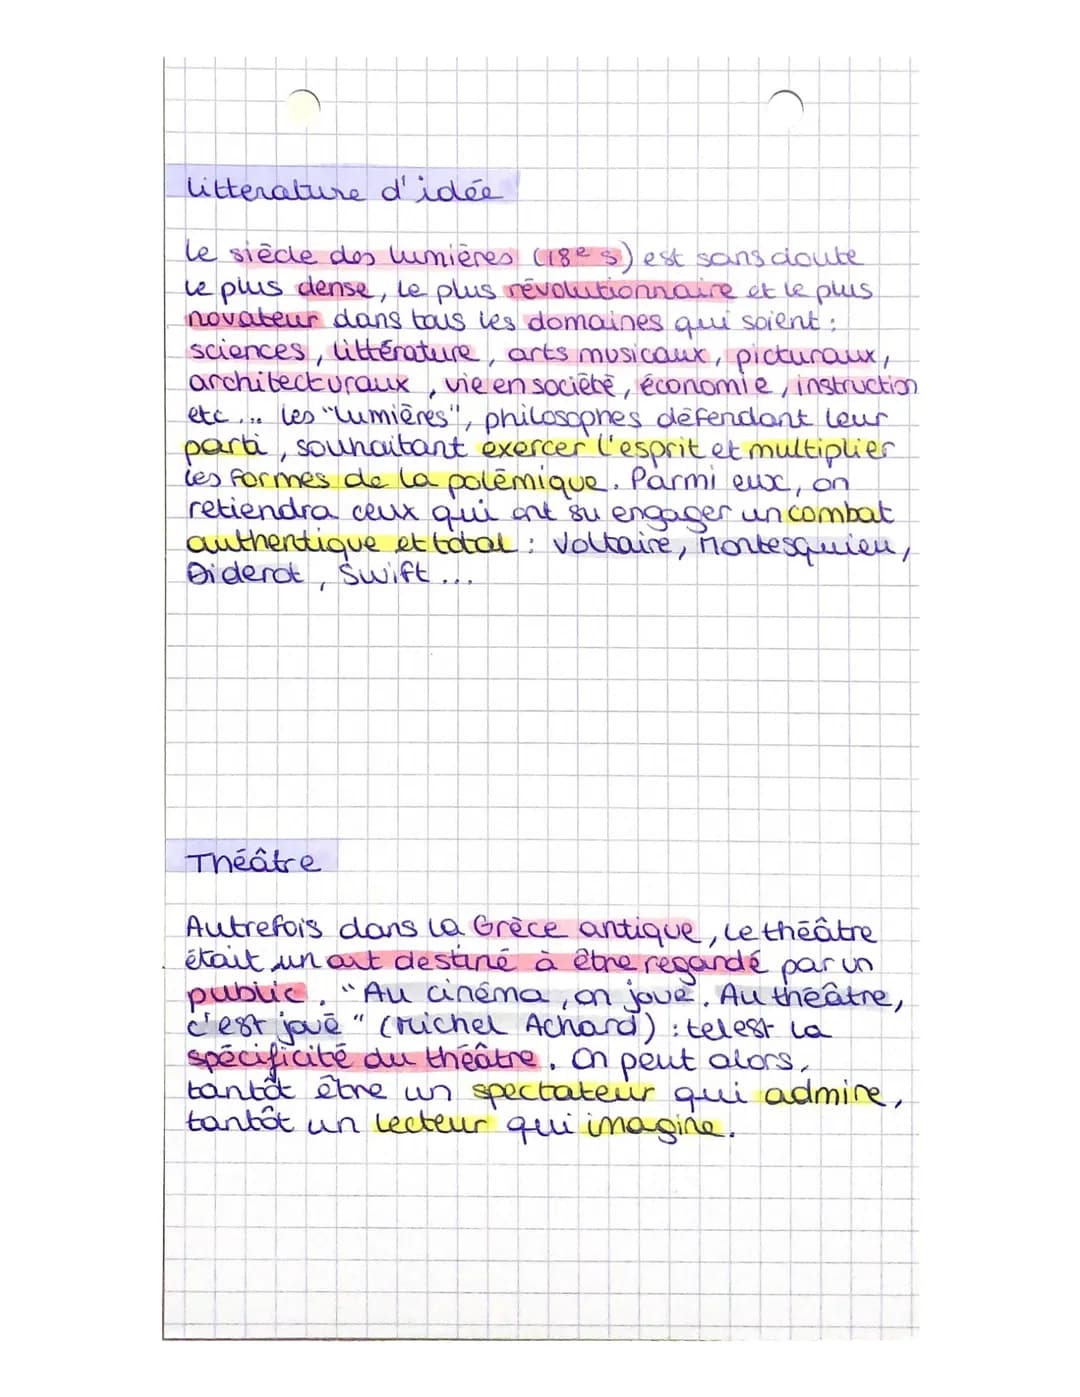 litterature d'idée
Le siècle des lumières (18e s) est sans doute
le plus dense, le plus révolutionnaire et le plus
novateur dans tous les domaines qui soient :
sciences, littérature, arts musicaux, picturaux,
architecturaux, vie en société, économie, instruction
etc... les "lumières", philosophes défendant leur
parti, souhaitant exercer l'esprit et multiplier
les formes de la polémique. Parmi eux, on
retiendra ceux qui ont su engager un combat
authentique et total : Voltaire, Montesquieu,
Diderot, Swift...
Théâtre
Autrefois dans la Grèce antique, le théâtre
était un art destiné à être regardé par un
public. "Au cinéma, on joue. Au théâtre,
c'est joué" (Michel Achard) : tel est la
spécificité du théâtre. On peut alors,
tantôt être un spectateur qui admire,
tantôt un lecteur qui imagine.